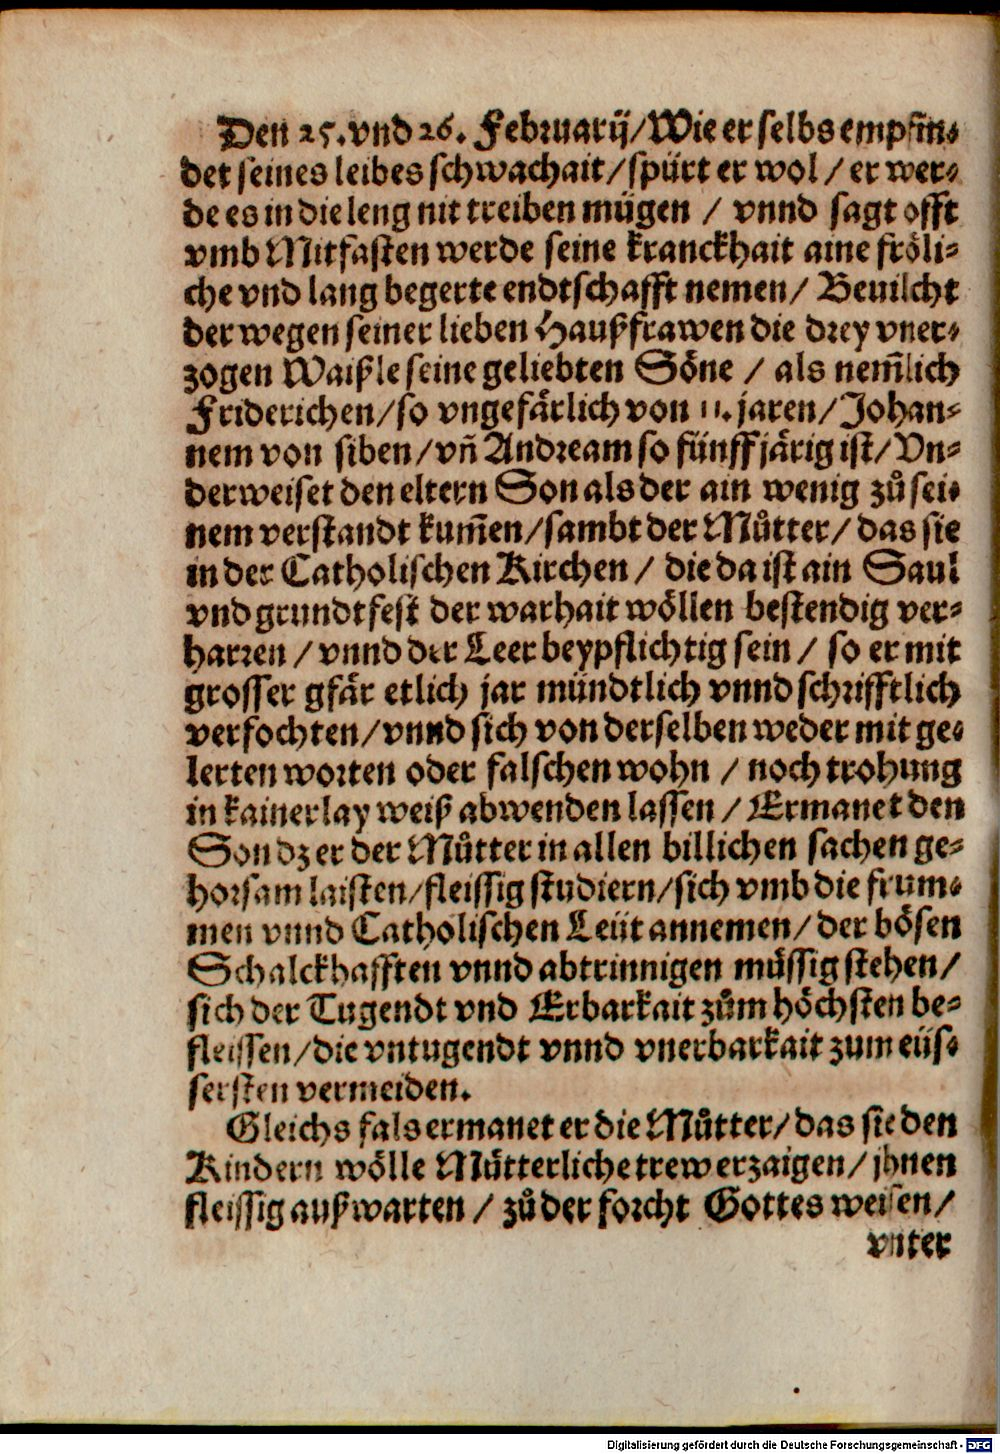 Den 25. vnd 26. Februarij/Wie er selbs empfin⸗
det seines leibes schwachait/spürt er wol / er wer⸗
de es in die leng nit treiben mügen / vnnd sagt offt
vmb Mitfasten werde seine kranckhait aine fröli⸗
che vnd lang begerte endtschafft nemen/ Beuilcht
der wegen seiner lieben Haußfrawen die drey vner⸗
zogen Waißle seine geliebten Söne / als nem̃lich
Friderichen/so vngefärlich von 11. jaren/Johan⸗
nem von siben/vñ Andream so fünff järig ist/Vn⸗
derweiset den eltern Son als der ain wenig zů sei⸗
nem verstandt kum̃en/sambt der Můtter/ das sie
in der Catholischen Kirchen / die da ist ain Saul
vnd grundtfest der warhait wöllen bestendig ver⸗
harren / vnnd der Leer beypflichtig sein / so er mit
grosser gfär etlich jar mündtlich vnnd schrifftlich
verfochten/vnnd sich von derselben weder mit ge⸗
lerten worten oder falschen wohn / noch trohung
in kainerlay weiß abwenden lassen / Ermanet den
Son dz er der Můtter in allen billichen sachen ge⸗
horsam laisten/fleissig studiern/sich vmb die frum⸗
men vnnd Catholischen Leüt annemen/ der bösen
Schalckhafften vnnd abtrinnigen müssig stehen/
sich der Tugendt vnd Erbarkait zům höchsten be⸗
fleissen/die vntugendt vnnd vnerbarkait zum eüs⸗
sersten vermeiden.
Gleichs fals ermanet er die Můtter/das sie den
Kindern wölle Mütterliche trew erzaigen/jhnen
fleissig außwarten / zů der forcht Gottes weisen/
vnter
Digitalisierung gefördert durch die Deutsche Forschungsgemeinschaft - DFG